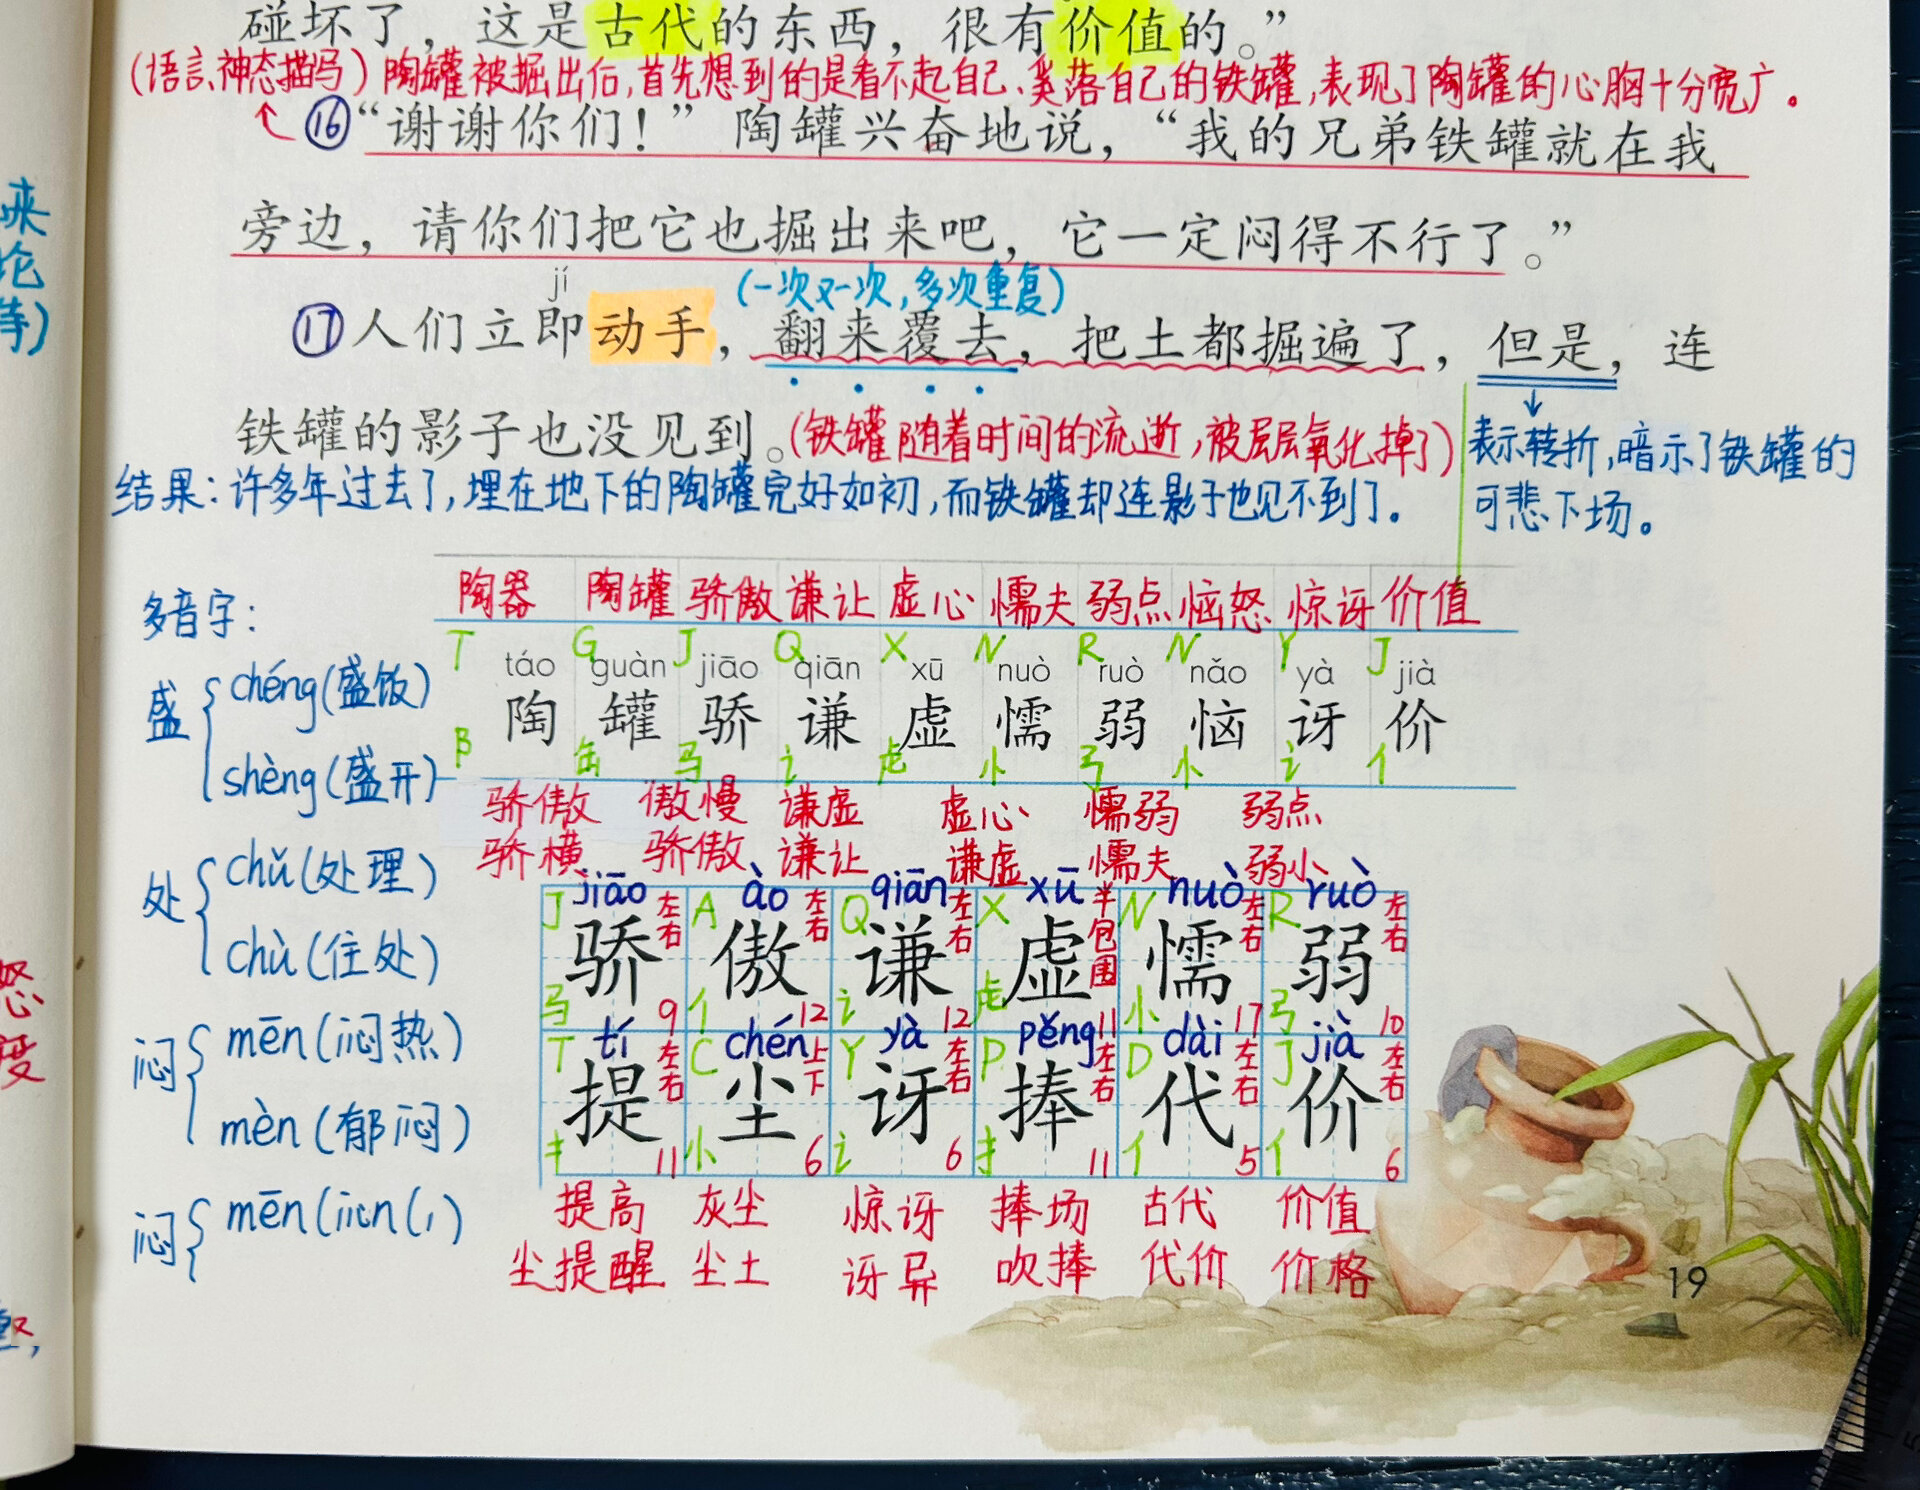 碰坏了，这是古代的东西，很有价值的。”
(语言、神态描写)陶罐被掘出后,首先想到的是看不起自己、奚落自己的铁罐,表现了陶罐的心胸十分宽广。
⑯“谢谢你们！”陶罐兴奋地说，“我的兄弟铁罐就在我
旁边，请你们把它也掘出来吧，它一定闷得不行了。”
jí
(一次又一次,多次重复)
⑰人们立即动手，翻来覆去，把土都掘遍了，但是，连
铁罐的影子也没见到。(铁罐随着时间的流逝,被层层氧化掉了)
表示转折,暗示了铁罐的
可悲下场。
结果:许多年过去了,埋在地下的陶罐完好如初,而铁罐却连影子也见不到了。
陶器 陶罐 骄傲 谦让 虚心 懦夫 弱点 恼怒 惊讶 价值
T G J Q X N R N Y J
táo guàn jiāo qiān xū nuò ruò nǎo yà jià
陶 罐 骄 谦 虚 懦 弱 恼 讶 价
阝 缶 马 讠 虍 忄 弓 忄 讠 亻
骄傲 傲慢 谦虚 虚心 懦弱 弱点
骄横 骄傲 谦让 谦虚 懦夫 弱小
jiāo ào qiān xū nuò ruò
J 左右 A 左右 Q 左右 X 半包围 N 左右 R 左右
骄 傲 谦 虚 懦 弱
马 9 亻 12 讠 12 虍 11 忄 17 弓 10
tí chén yà pěng dài jià
T 左右 C 上下 Y 左右 P 左右 D 左右 J 左右
提 尘 讶 捧 代 价
扌 11 小 6 讠 6 扌 11 亻 5 亻 6
提高 灰尘 惊讶 捧场 古代 价值
尘提醒 尘土 讶异 吹捧 代价 价格
多音字:
盛
chéng(盛饭)
shèng(盛开)
处
chǔ(处理)
chù(住处)
闷
mēn(闷热)
mèn(郁闷)
闷
mēn(
19
来
论
等)
怒
度